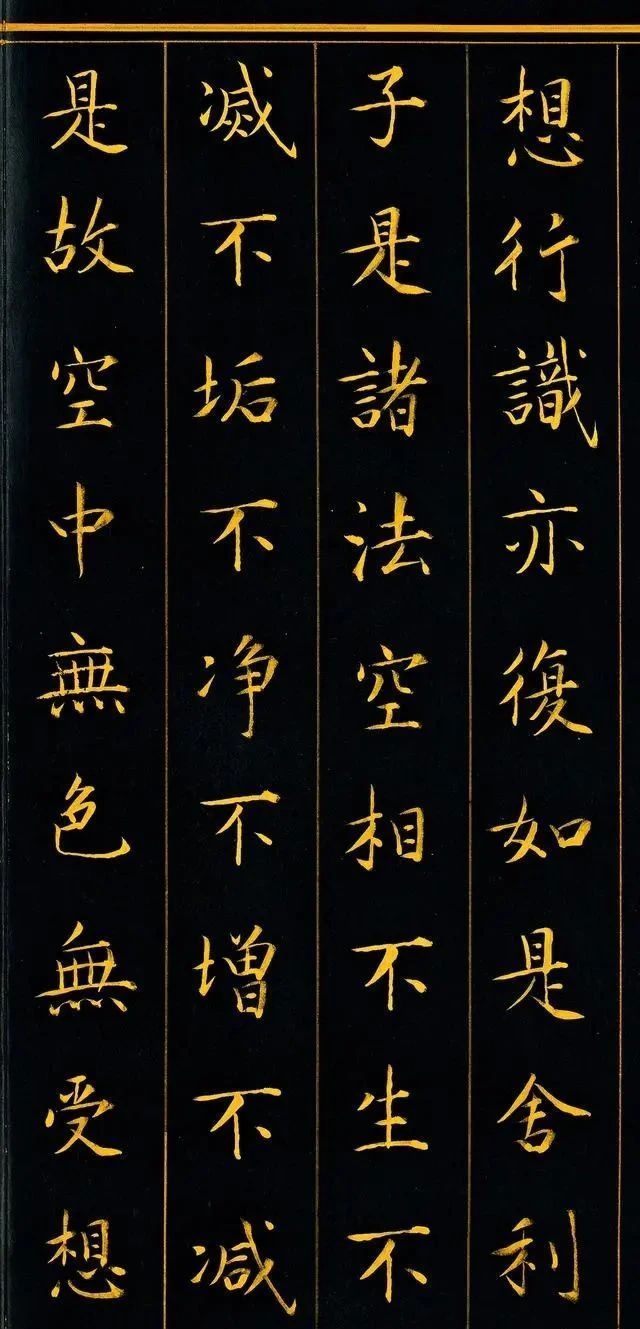 想行識亦復如是舍利
子是諸法空相不生不
滅不垢不净不增不減
是故空中無色無受想